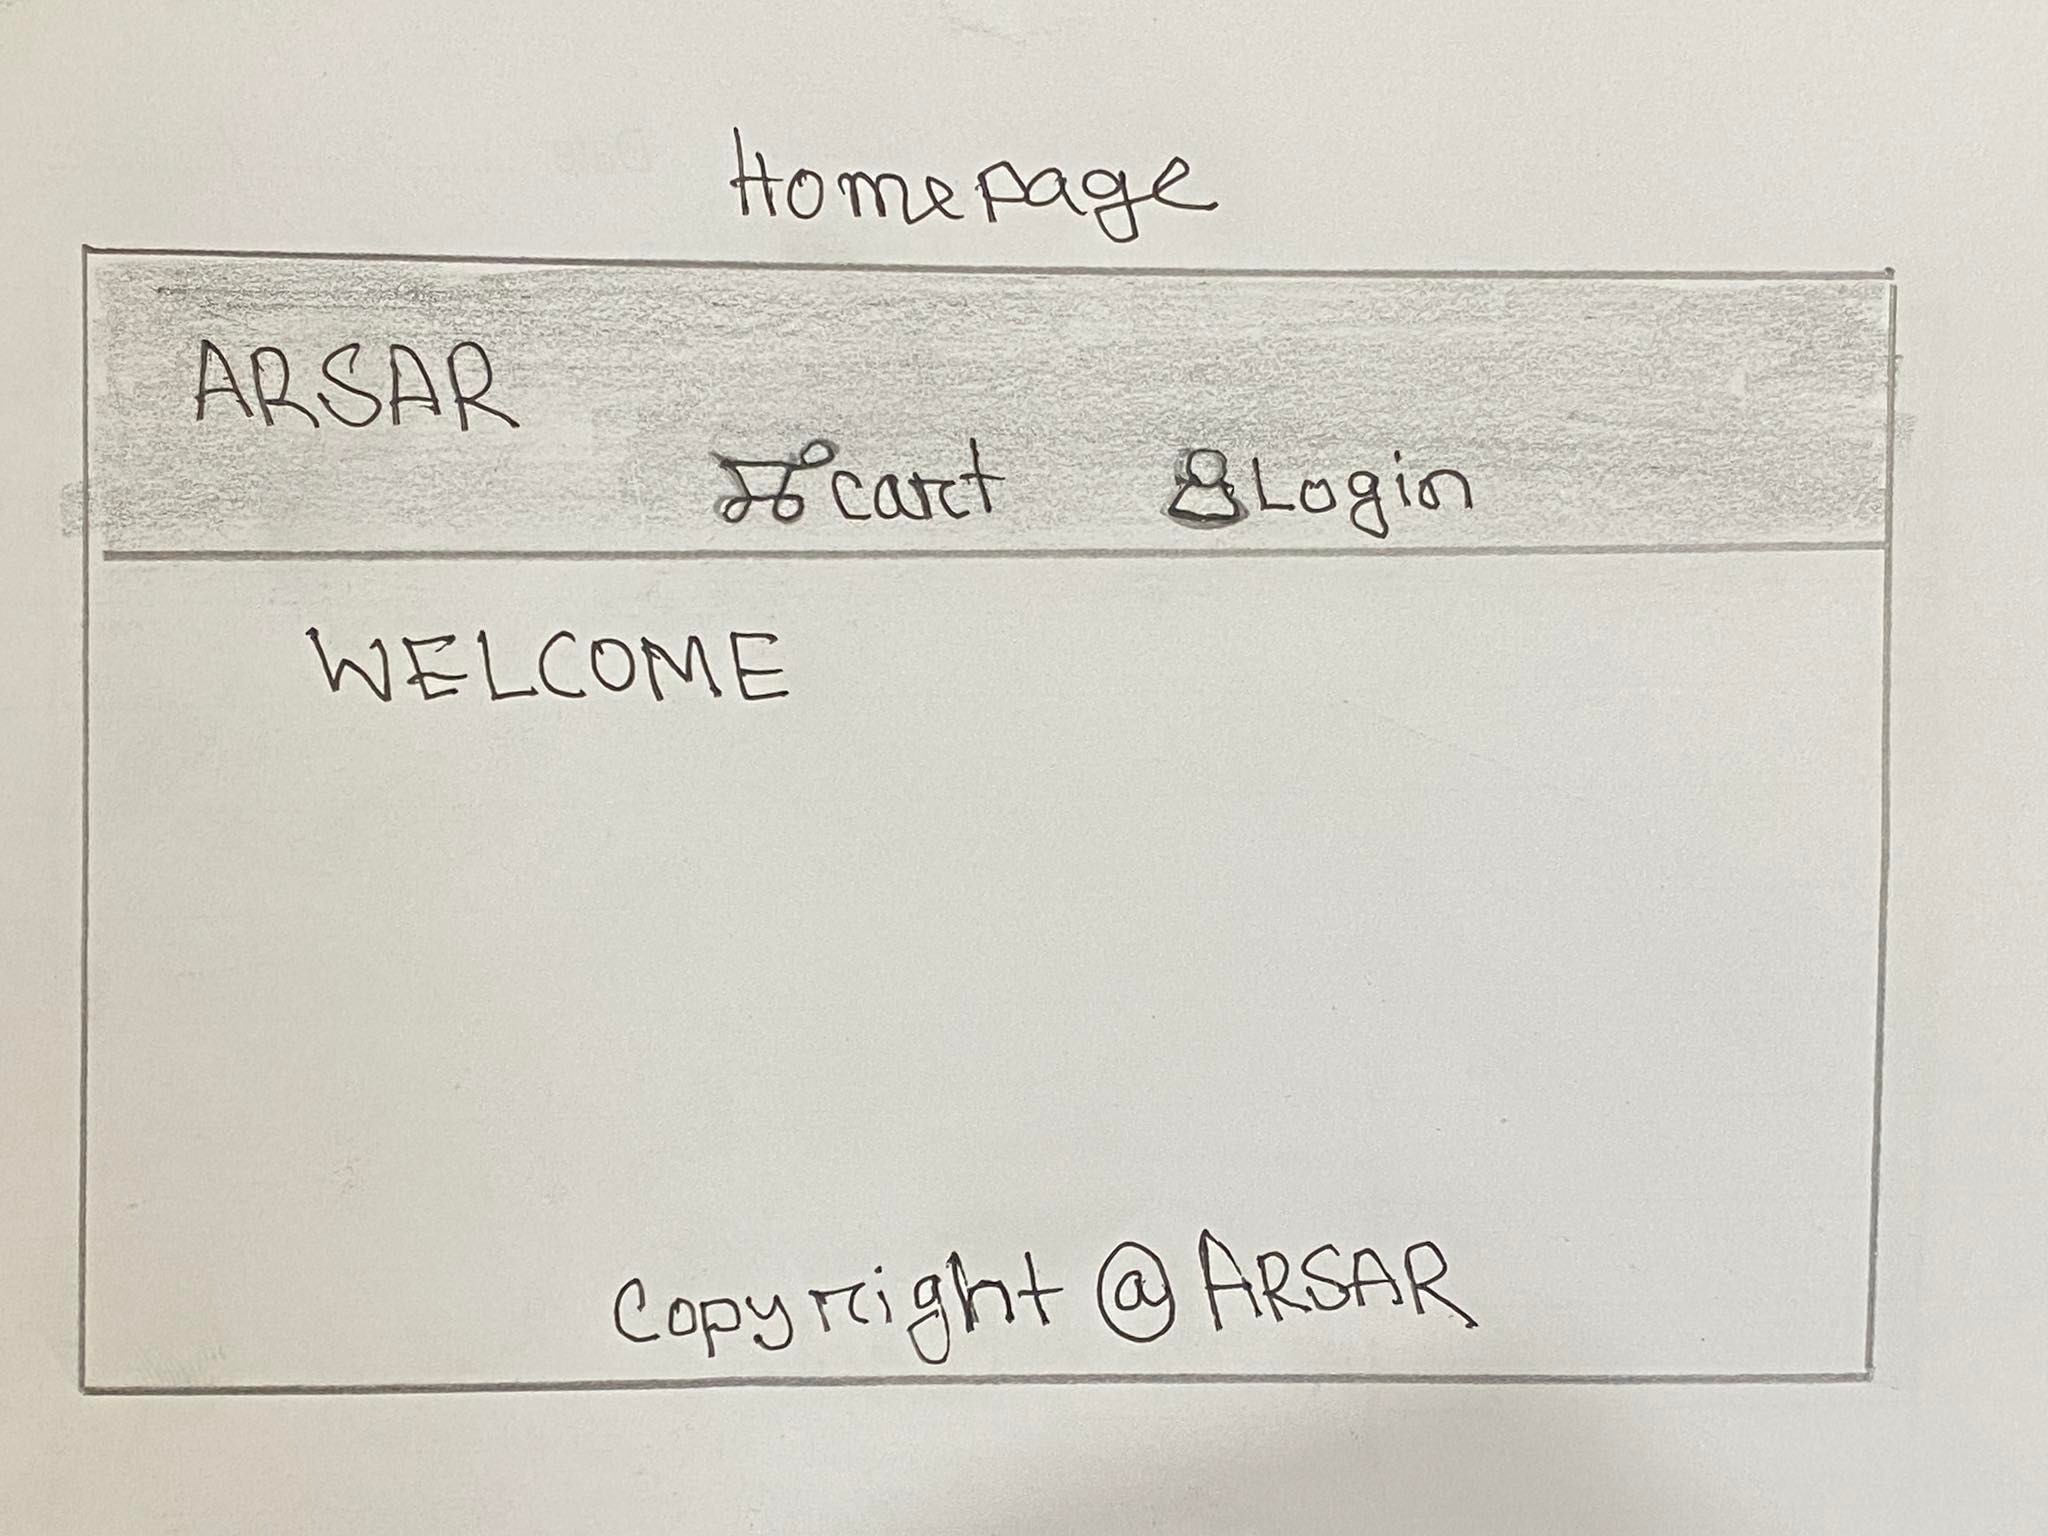 Homepage
ARSAR
cart Login
WELCOME
Copyright @ ARSAR